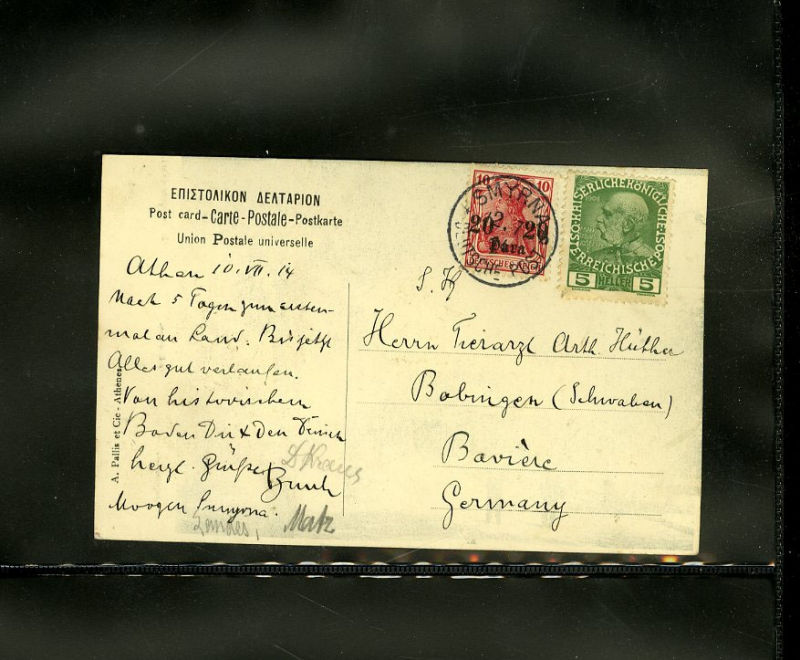 ΕΠΙΣΤΟΛΙΚΟΝ ΔΕΛΤΑΡΙΟΝ
Post card-Carte-Postale-Postkarte
Union Postale universelle
Athen 10. VII. 14
Nach 5 Tagen zum ersten-
mal an Land. Bis jetzt
Alles gut verlaufen.
Von historischem
Boden Dir & den
herzl. Grüße
Morgen Smyrna.
Matz
A. Pallis et Cie - Athènes
10 10
SMYRNA
20 20
Para
DEUTSCHES REICH
KAISERLICHE KÖNIGLICHE
ÖSTERREICHISCHE POST
5 HELLER 5
S. H
Herrn Tierarzt Arth. Hüther
Bobingen (Schwaben)
Bavière
Germany